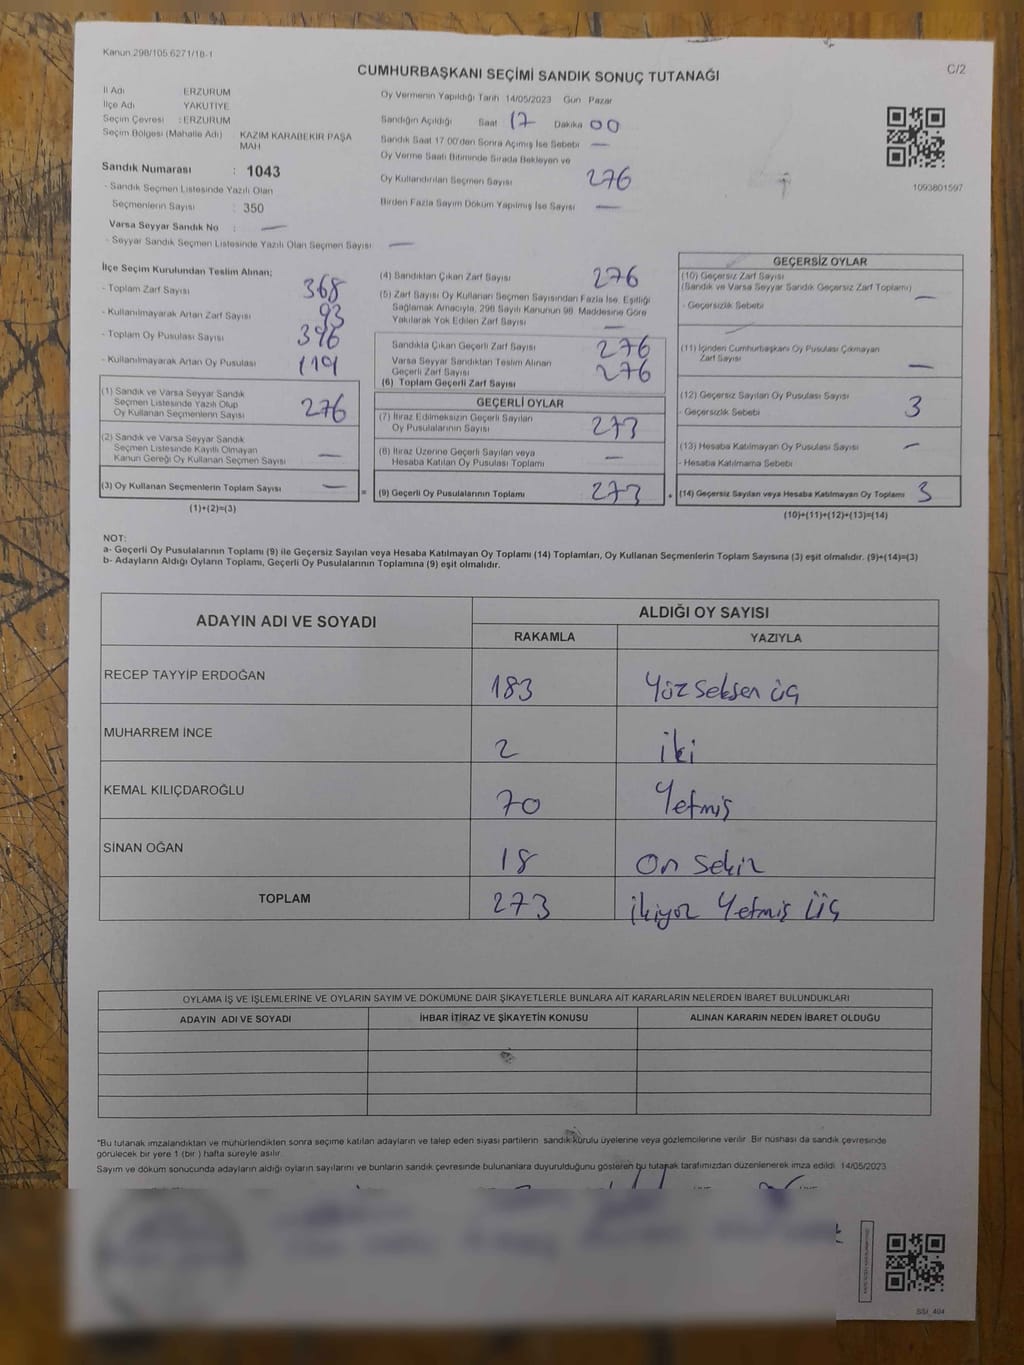 Kanun 298/105.6271/18-1
CUMHURBAŞKANI SEÇİMİ SANDIK SONUÇ TUTANAĞI
C/2
İl Adı ERZURUM
İlçe Adı YAKUTİYE
Seçim Çevresi : ERZURUM
Seçim Bölgesi (Mahalle Adı) : KAZIM KARABEKİR PAŞA MAH
Sandık Numarası : 1043
- Sandık Seçmen Listesinde Yazılı Olan
Seçmenlerin Sayısı : 350
Varsa Seyyar Sandık No : —
- Seyyar Sandık Seçmen Listesinde Yazılı Olan Seçmen Sayısı —
Oy Vermenin Yapıldığı Tarih 14/05/2023 Gün Pazar
Sandığın Açıldığı Saat 17 Dakika 00
Sandık Saat 17.00'den Sonra Açılmış İse Sebebi —
Oy Verme Saati Bitiminde Sırada Bekleyen ve
Oy Kullandırılan Seçmen Sayısı 276
Birden Fazla Sayım Döküm Yapılmış İse Sayısı —
1093801597
İlçe Seçim Kurulundan Teslim Alınan;
- Toplam Zarf Sayısı 368
- Kullanılmayarak Artan Zarf Sayısı 93
- Toplam Oy Pusulası Sayısı 396
- Kullanılmayarak Artan Oy Pusulası 119
(1) Sandık ve Varsa Seyyar Sandık
Seçmen Listesinde Yazılı Olup
Oy Kullanan Seçmenlerin Sayısı 276
(2) Sandık ve Varsa Seyyar Sandık
Seçmen Listesinde Kayıtlı Olmayan
Kanun Gereği Oy Kullanan Seçmen Sayısı —
(3) Oy Kullanan Seçmenlerin Toplam Sayısı —
(1)+(2)=(3)
(4) Sandıktan Çıkan Zarf Sayısı 276
(5) Zarf Sayısı Oy Kullanan Seçmen Sayısından Fazla İse, Eşitliği
Sağlamak Amacıyla, 298 Sayılı Kanunun 98. Maddesine Göre
Yakılarak Yok Edilen Zarf Sayısı —
Sandıkta Çıkan Geçerli Zarf Sayısı 276
Varsa Seyyar Sandıktan Teslim Alınan
Geçerli Zarf Sayısı 276
(6) Toplam Geçerli Zarf Sayısı
GEÇERLİ OYLAR
(7) İtiraz Edilmeksizin Geçerli Sayılan
Oy Pusulalarının Sayısı 273
(8) İtiraz Üzerine Geçerli Sayılan veya
Hesaba Katılan Oy Pusulası Toplamı —
= (9) Geçerli Oy Pusulalarının Toplamı 273
GEÇERSİZ OYLAR
(10) Geçersiz Zarf Sayısı
(Sandık ve Varsa Seyyar Sandık Geçersiz Zarf Toplamı) —
- Geçersizlik Sebebi
(11) İçinden Cumhurbaşkanı Oy Pusulası Çıkmayan
Zarf Sayısı —
(12) Geçersiz Sayılan Oy Pusulası Sayısı 3
- Geçersizlik Sebebi
(13) Hesaba Katılmayan Oy Pusulası Sayısı —
- Hesaba Katılmama Sebebi
+ (14) Geçersiz Sayılan veya Hesaba Katılmayan Oy Toplamı 3
(10)+(11)+(12)+(13)=(14)
NOT:
a- Geçerli Oy Pusulalarının Toplamı (9) ile Geçersiz Sayılan veya Hesaba Katılmayan Oy Toplamı (14) Toplamları, Oy Kullanan Seçmenlerin Toplam Sayısına (3) eşit olmalıdır. (9)+(14)=(3)
b- Adayların Aldığı Oyların Toplamı, Geçerli Oy Pusulalarının Toplamına (9) eşit olmalıdır.
ADAYIN ADI VE SOYADI
ALDIĞI OY SAYISI
RAKAMLA YAZIYLA
RECEP TAYYİP ERDOĞAN 183 Yüz seksen üç
MUHARREM İNCE 2 iki
KEMAL KILIÇDAROĞLU 70 Yetmiş
SİNAN OĞAN 18 on sekiz
TOPLAM 273 ikiyüz Yetmiş Üç
OYLAMA İŞ VE İŞLEMLERİNE VE OYLARIN SAYIM VE DÖKÜMÜNE DAİR ŞİKAYETLERLE BUNLARA AİT KARARLARIN NELERDEN İBARET BULUNDUKLARI
ADAYIN ADI VE SOYADI İHBAR İTİRAZ VE ŞİKAYETİN KONUSU ALINAN KARARIN NEDEN İBARET OLDUĞU
*Bu tutanak imzalandıktan ve mühürlendikten sonra seçime katılan adayların ve talep eden siyasi partilerin sandık kurulu üyelerine veya gözlemcilerine verilir. Bir nüshası da sandık çevresinde
görülecek bir yere 1 (bir ) hafta süreyle asılır.
Sayım ve döküm sonucunda adayların aldığı oyların sayılarını ve bunların sandık çevresinde bulunanlara duyurulduğunu gösteren bu tutanak tarafımızdan düzenlenerek imza edildi. 14/05/2023
SSI_404